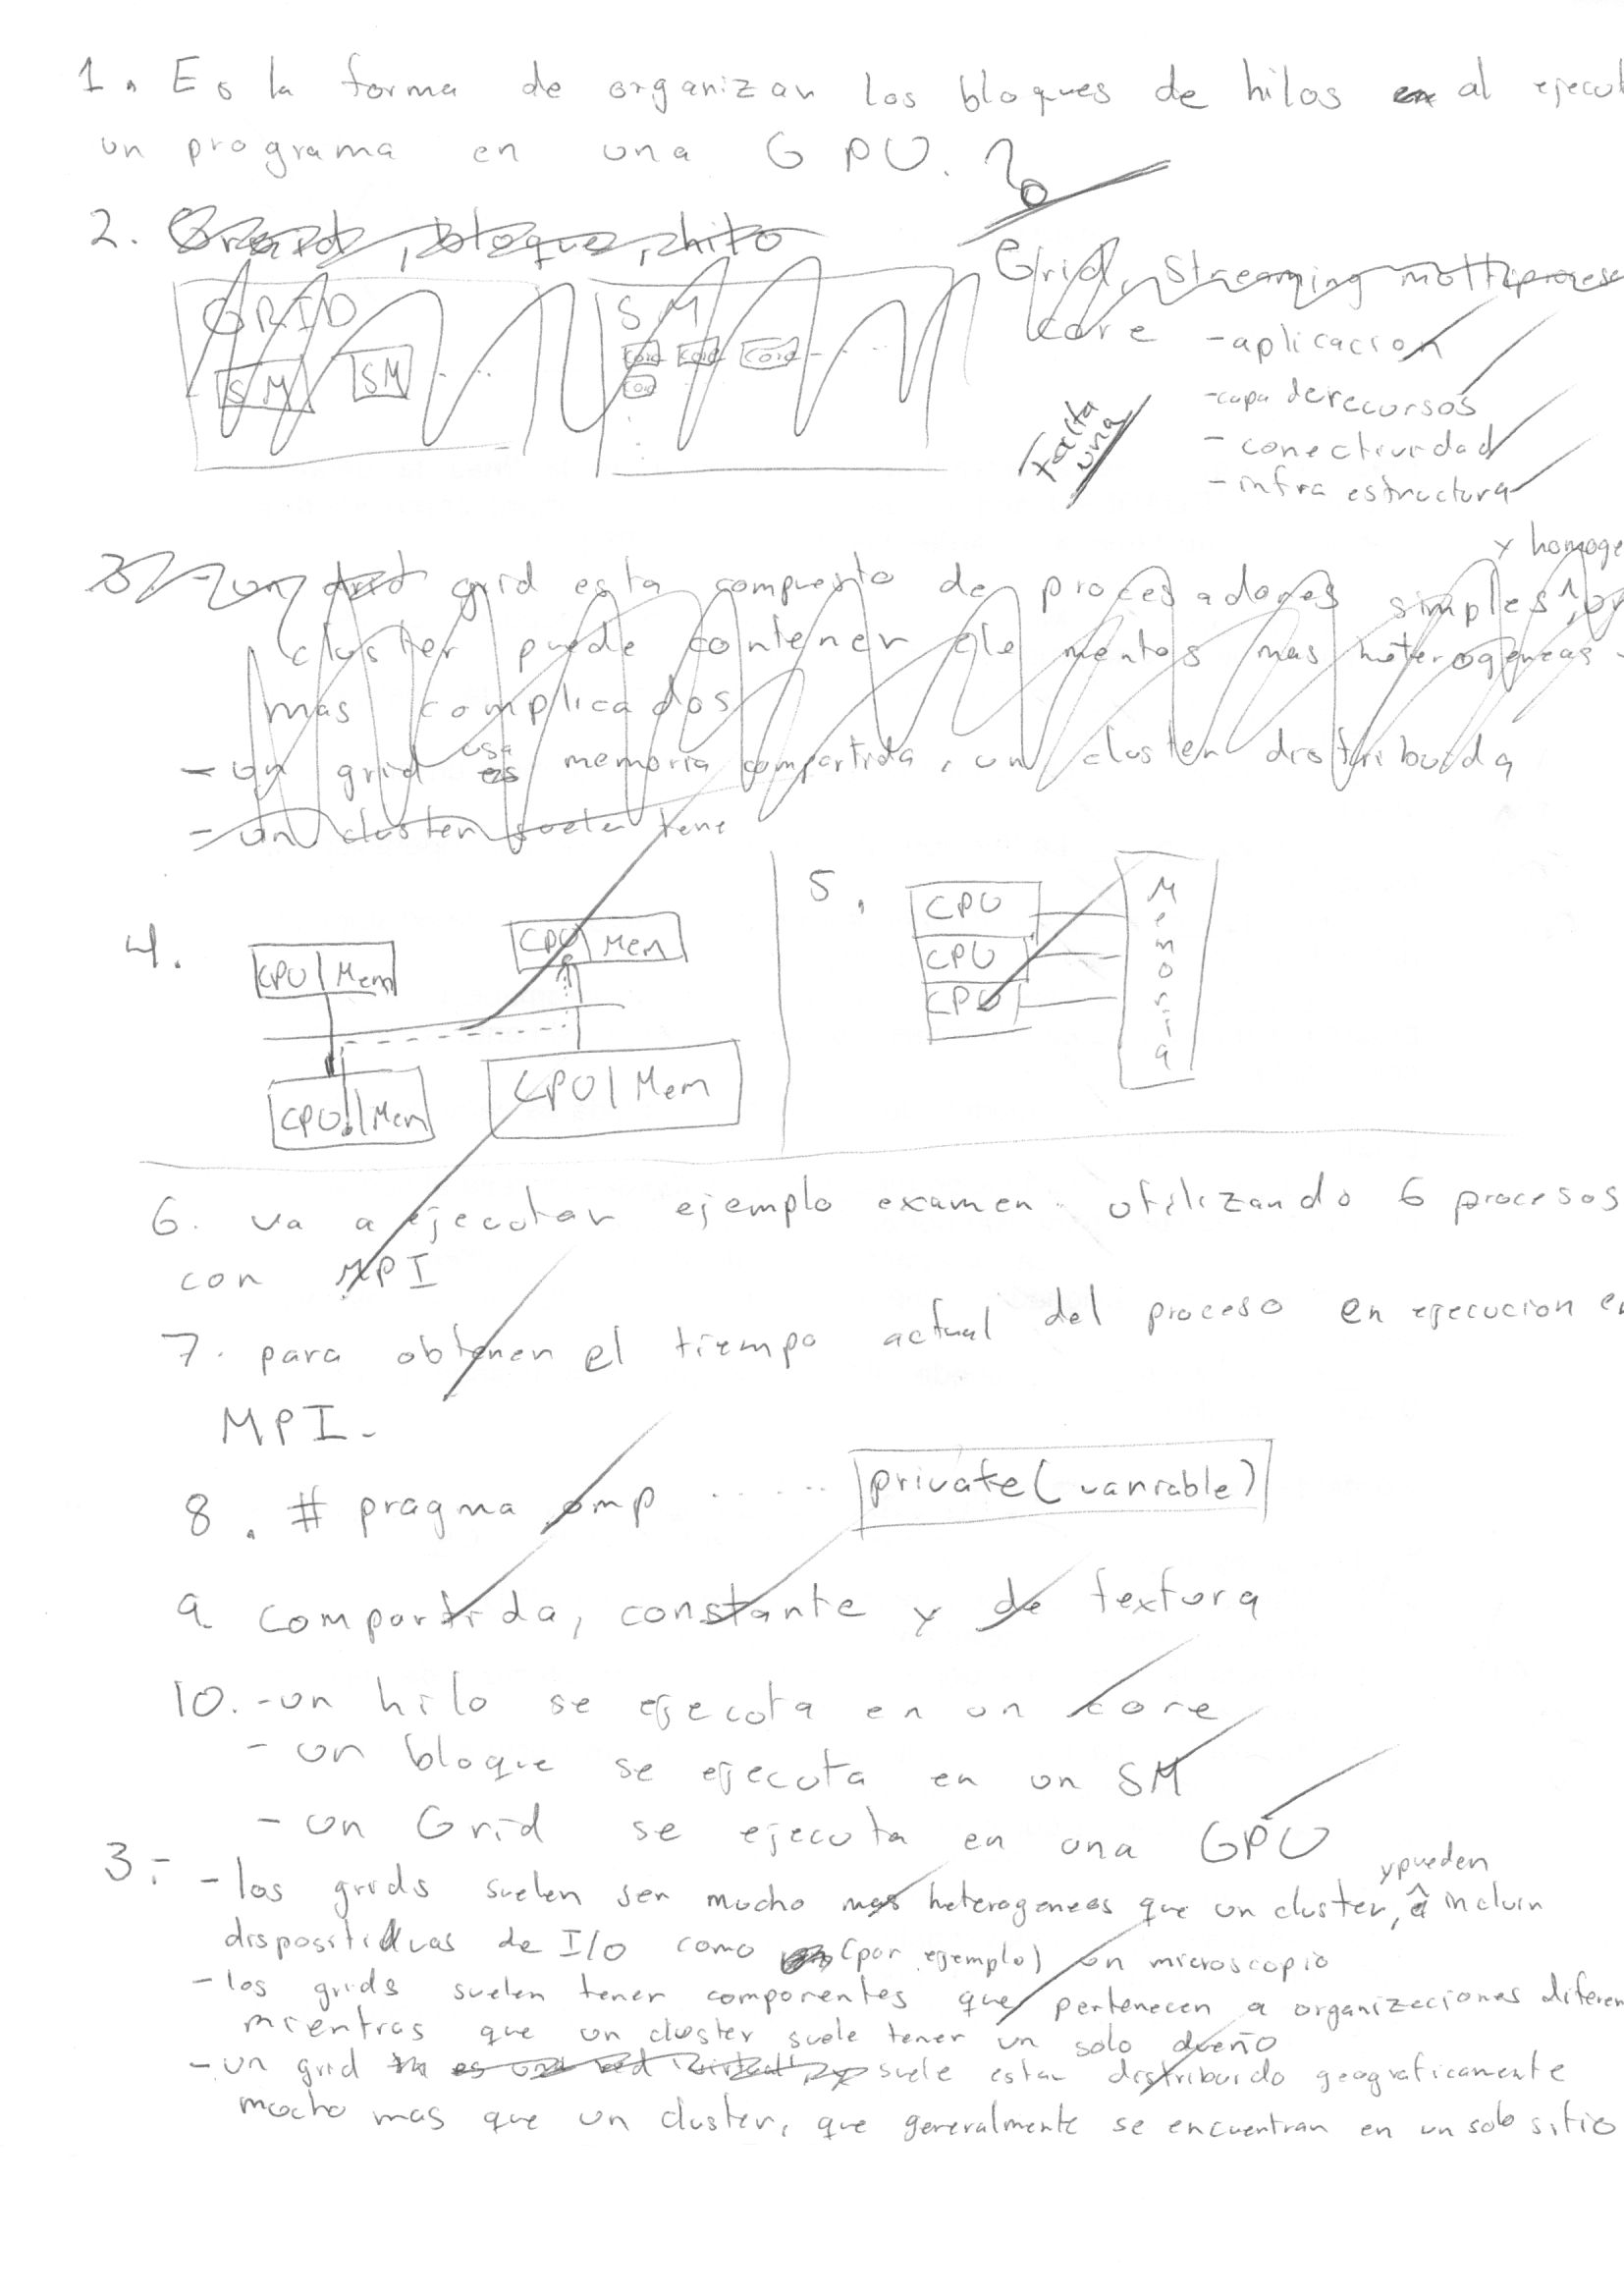 1. Es la forma de organizar los bloques de hilos en al ejecut
un programa en una GPU.
2. Grid, bloque, hilo
Grid, Streaming
GRID
SM SM . . .
SM
core core core . . .
core
core
- aplicacion
- capa de recursos
- conectividad
- infra estructura
Falta
una
y homoge
3. - un grid esta compuesto de procesadores simples
cluster puede contener elementos mas heterogeneas
mas complicados
- un grid es usa memoria compartida, un cluster distribuida
- un cluster suele tene
4.
CPU | Mem
CPU | Mem
CPU | Mem
CPU | Mem
5.
CPU
CPU
CPU
Memoria
6. va a ejecutar ejemplo examen utilizando 6 procesos
con MPI
7. para obtener el tiempo actual del proceso en ejecucion en
MPI.
8. # pragma omp ..... private(variable)
9. compartida, constante y de textura
10. - un hilo se ejecuta en un core
- un bloque se ejecuta en un SM
- un Grid se ejecuta en una GPU
3.- - los grids suelen ser mucho mas heterogeneos que un cluster, y pueden incluir
dispositivos de I/O como (por ejemplo) un microscopio
- los grids suelen tener componentes que pertenecen a organizaciones diferen
mientras que un cluster suele tener un solo dueño
- un grid suele estar distribuido geograficamente
mucho mas que un cluster, que generalmente se encuentran en un solo sitio